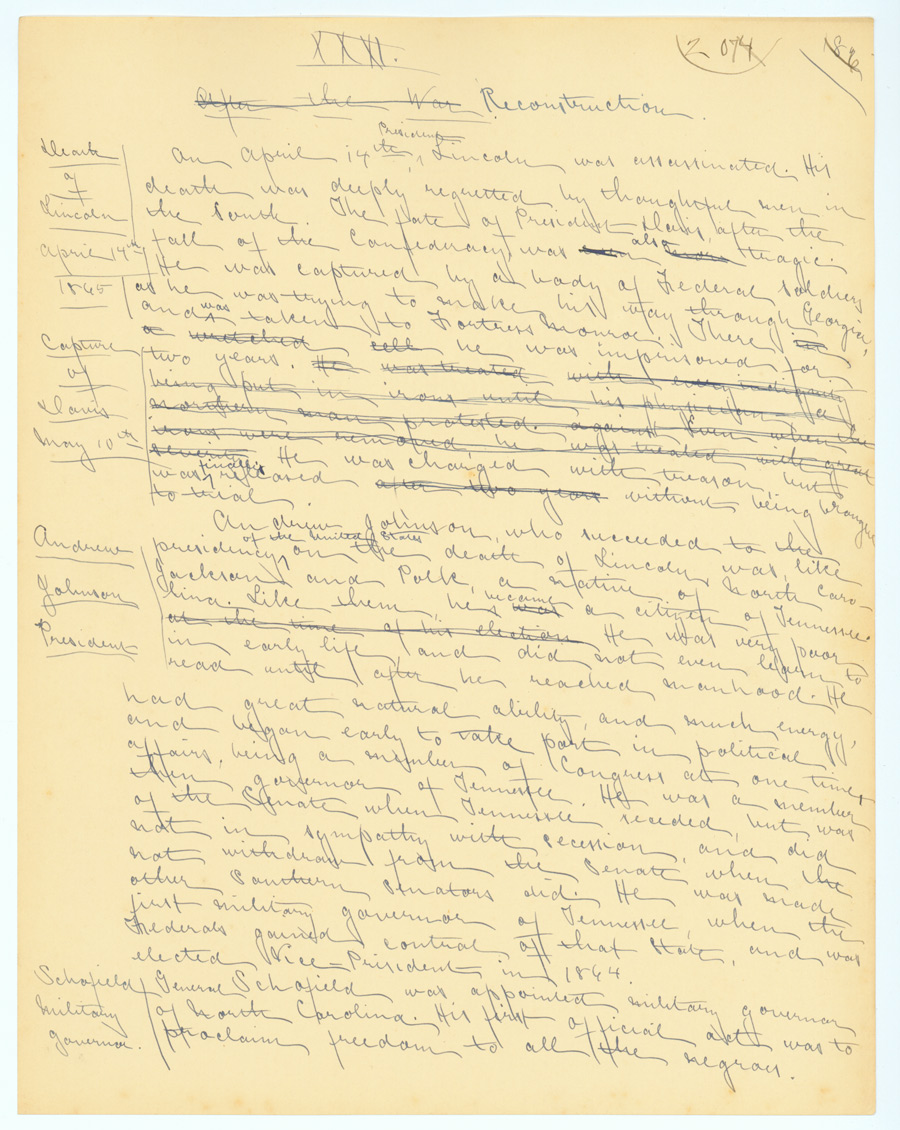 XXXI.
2 074
186
After the War Reconstruction.
Death
of
Lincoln
April 14th
1865
President
On April 14th, Lincoln was assassinated. His
death was deeply regretted by thoughtful men in
the South. The fate of President Davis, after the
fall of the Confederacy, was also tragic.
He was captured by a body of Federal soldiers
as he was trying to make his way through Georgia,
and was taken to Fortress Monroe. There in
a wretched cell he was imprisoned for
Capture
of
Davis
May 10th
two years. He was treated with every indignity
being put in irons until his physician a
northern man protested. against Even when the
irons were removed, he was treated with great
severity. He was charged with treason, but
was finally released after two years without being brought
to trial.
Andrew
Johnson
President
Andrew Johnson, who succeeded to the
presidency of the United States on the death of Lincoln, was, like
Jackson and Polk, a native of North Caro-
lina. Like them, he became was a citizen of Tennessee.
at the time of his election He was very poor
in early life, and did not even learn to
read until after he reached manhood. He
had great natural ability, and much energy,
and began early to take part in political
affairs, being a member of Congress at one time,
then governor of Tennessee. He was a member
of the Senate when Tennessee seceded, but was
not in sympathy with secession, and did
not withdraw from the Senate when the
other Southern Senators did. He was made
first military governor of Tennessee, when the
Federals gained control of that State, and was
elected Vice-President in 1864.
Schofield
military
governor.
General Schofield was appointed military governor
of North Carolina. His first official act was to
proclaim freedom to all the negroes.